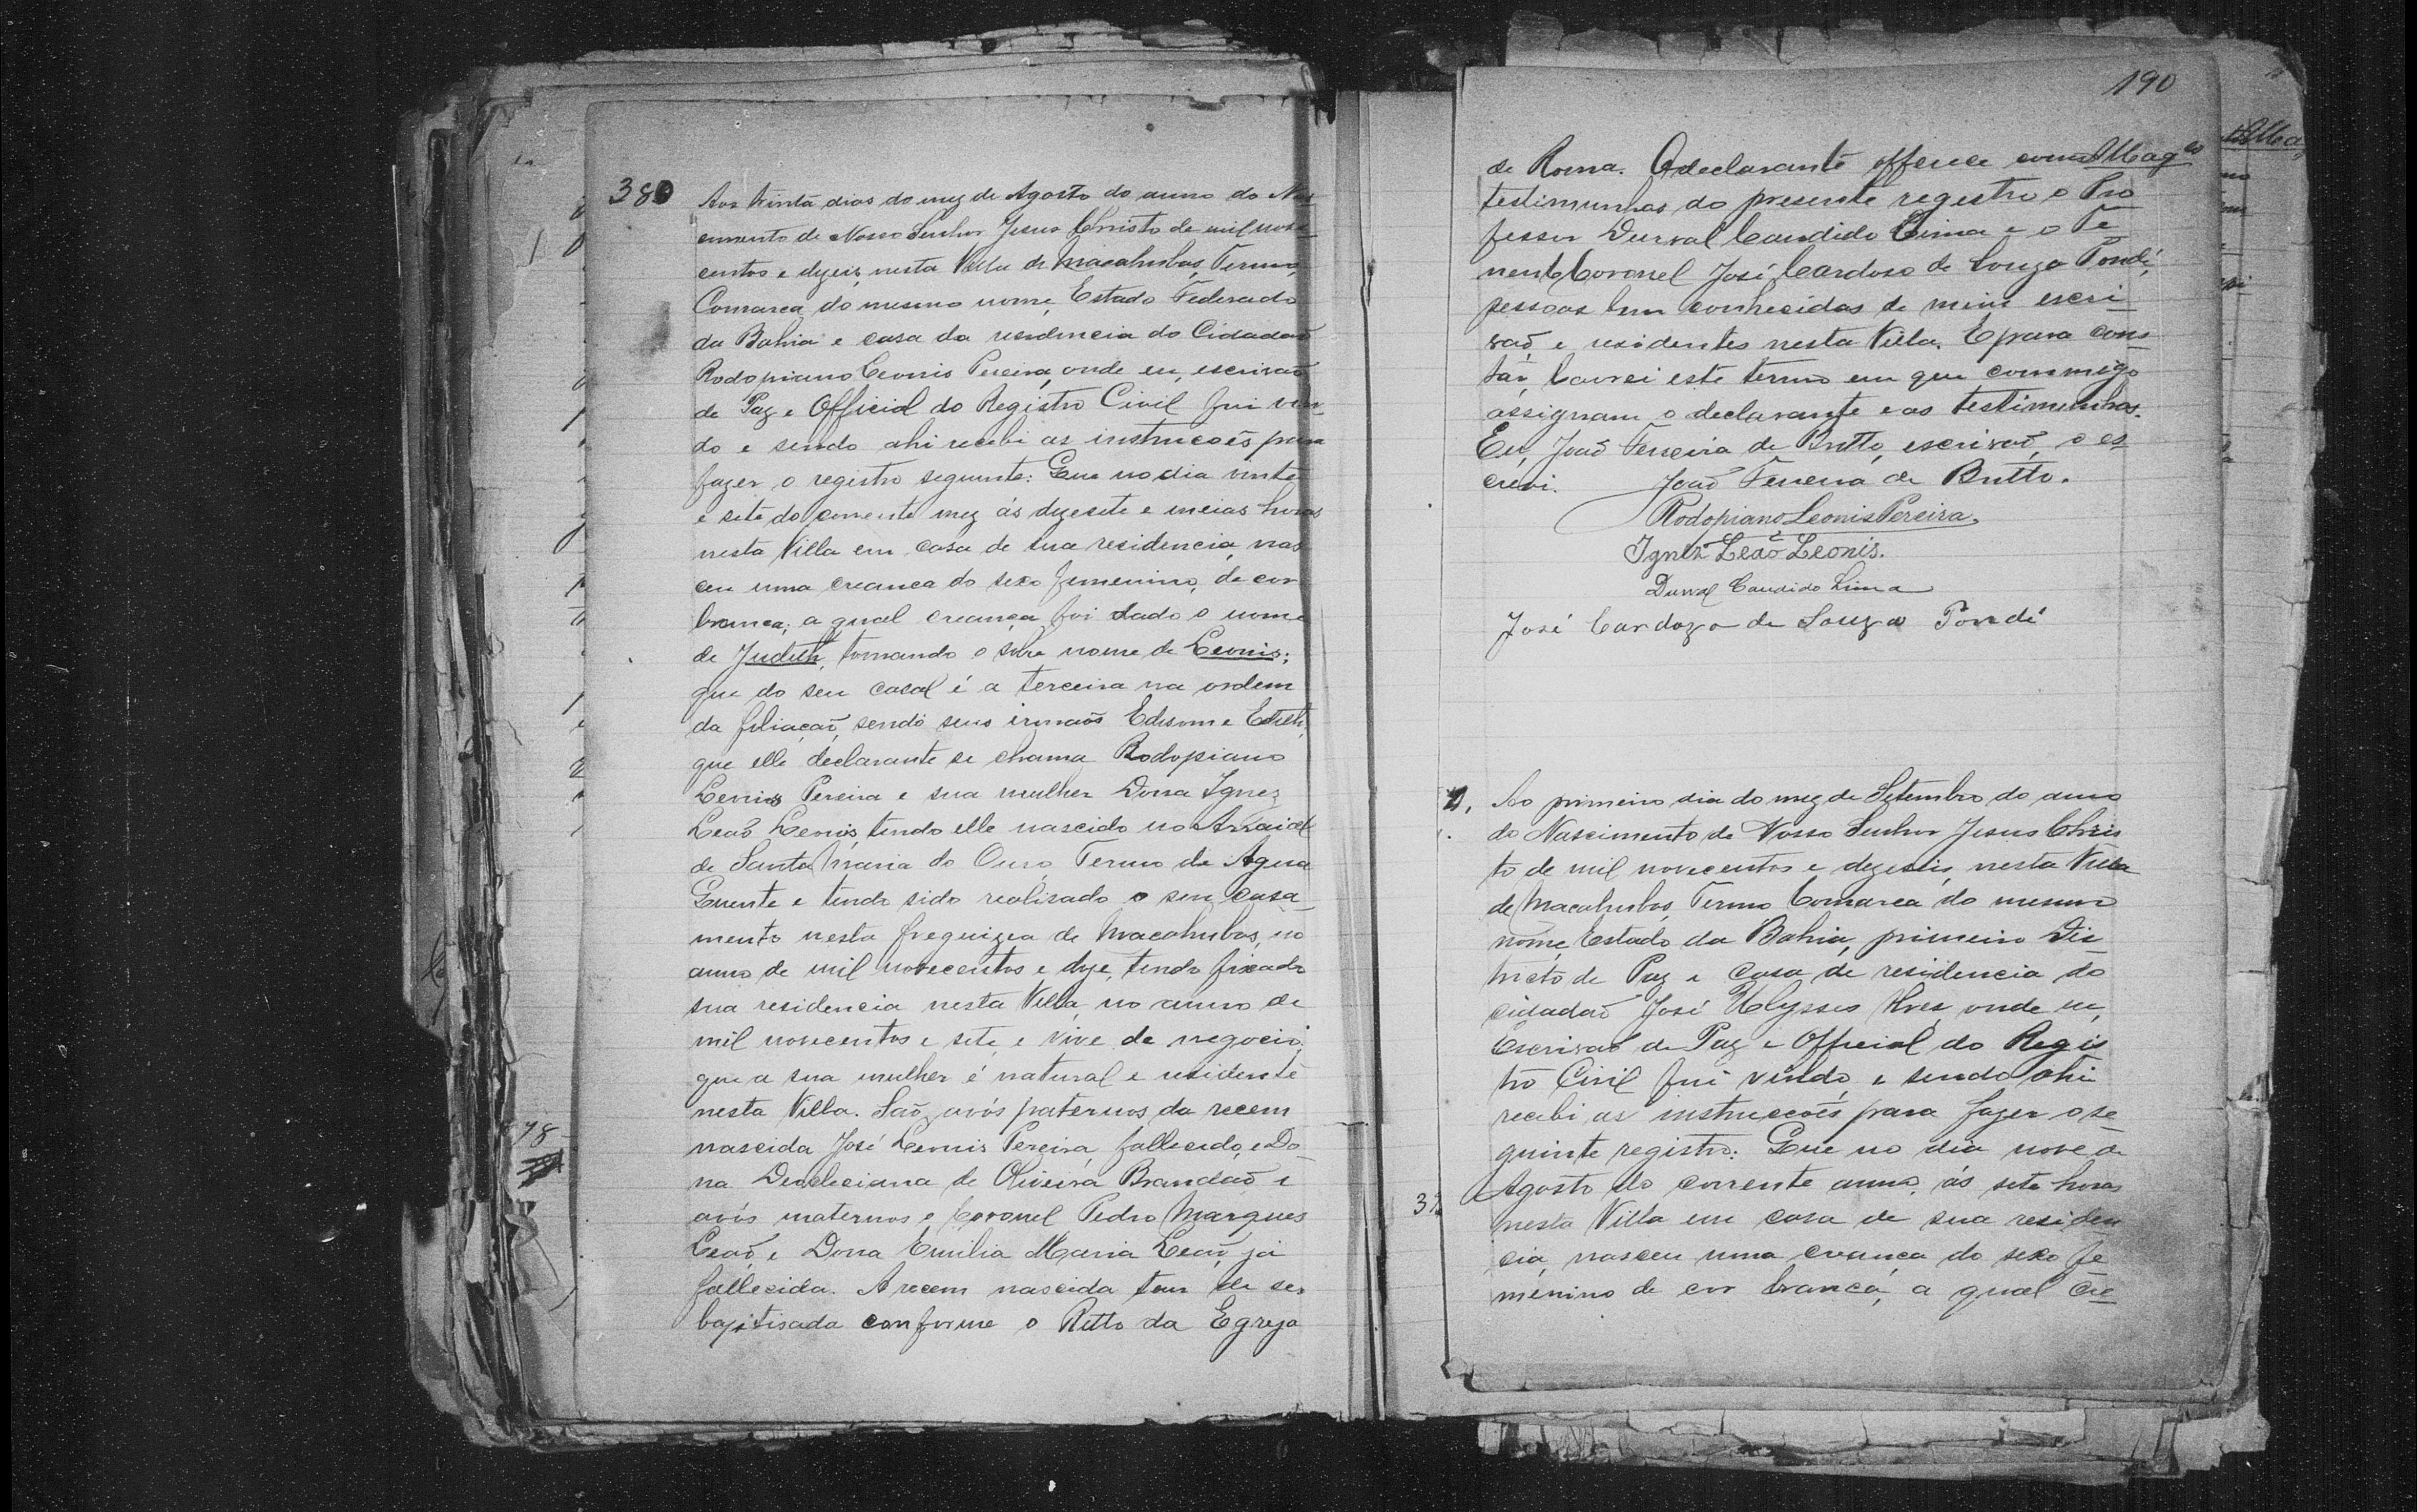 380
Aos trinta dias do mez de Agosto do anno do Nas
cimento de Nosso Senhor Jesus Christo de mil nove
centos e dezeis, nesta Villa de Macahubas, Termo,
Comarca do mesmo nome, Estado Federado
da Bahia e casa da residencia do Cidadaõ
Rodopiano Leonis Pereira, onde eu, escrivaõ
de Paz e Official do Registro Civil fui vin
do e sendo ahi recebi as instrucoẽs para
fazer o registro seguinte: Que no dia vinte
e sete do corrente mez ás dezesete e meias horas
nesta Villa em casa de sua residencia, nas
ceu uma creança do sexo femenino, de cor
branca; a qual creança foi dado o nome
de Judith, tomando o sobre nome de Leonis;
que do seu casal é a terceira na ordem
da filiaçaõ, sendo seus irmaõs Edison e Edith;
que elle declarante se chama Rodopiano
Leonis Pereira e sua mulher Dona Ignez
Leaõ Leonis, tendo elle nascido no Arraial
de Santa Maria do Ouro, Termo de Agua
Quente e tendo sido realisado o seu casa_
mento nesta freguizia de Macahubas, no
anno de mil novecentos e dze, tendo fixado
sua residencia nesta Villa, no anno de
mil novecentos e sete, e vive de negocio;
que a sua mulher é natural e residente
nesta Villa. Saõ avós paternos da recem
nascida José Leonis Pereira, fallecido, e Do_
na Deocleciana de Oliveira Brandaõ e
avós maternos o Coronel Pedro Marques
Leaõ, e Dona Emilia Maria Leaõ, já
fallecida. A recem nascida tem de ser
baptisada conforme o Ritto da Egreja
78
190
de Roma. O declarante offerece como
testimunhas do presente registro o Pro
fessor Durval Candido Lima e o Te
nente Coronel José Cardoso de Souza Pondé,
pessoas bem conhecidas de mim escri_
vaõ, e residentes nesta Villa. E para cons
tar, lavrei este termo em que commigo
assignam o declarante e as testimunhas.
Eu, Joaõ Ferreira de Britto, escrivaõ, o es
crevi. Joaõ Ferreira de Britto.
Rodopiano Leonis Pereira.
Ignez Leaõ Leonis.
Durval Candido Lima
José Cardozo de Souza Pondé
Ao primeiro dia do mez de Setembro do anno
do Nascimento de Nosso Senhor Jesus Chris
to de mil novecentos e dezeseis, nesta Villa
de Macahubas, Termo Comarca do mesmo
nome, Estado da Bahia, primeiro Dis_
tricto de Paz e casa de residencia do
cidadaõ José Ulysses Alves, onde eu,
Escrivaõ de Paz e Official do Regis
tro Civil fui vindo, e sendo ahi
recebi as instrucçoẽs para fazer o se_
guinte registro: Que no dia nove de
Agosto do corrente anno, ás sete horas
nesta Villa em casa de sua residen
cia, nasceu uma creança do sexo fe_
menino de cor branca, a qual cre_